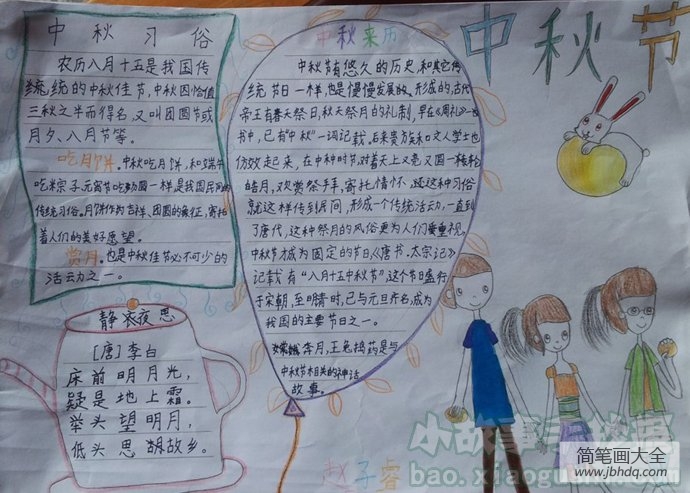 中秋习俗
农历八月十五是我国传
统的中秋佳节,中秋因恰值
三秋之半而得名,又叫团圆节或
月夕、八月节等。
吃月饼。中秋吃月饼,和端午
吃粽子元宵节吃勤圆一样,是我国民间的
传统习俗。月饼作为吉祥、团圆的象征,寄托
着人们的美好愿望。
赏月。也是中秋佳节必不可少的
活动之一。
中秋来历
中秋节有悠久的历史,和其它传
统节日一样,也是慢慢发展的,形成的,古代
帝王有春天祭日,秋天祭月的礼制,早在《周礼》一
书中,已有“中秋”一词记载,后来贵族和文人学士也
仿效起来,在中秋时节,对着天上又亮又圆一轮
皓月,欣赏祭拜,寄托情怀,这种习俗
就这样传到民间,形成一个传统活动,一直到
了唐代,这种祭月的风俗更为人们重视,
中秋节才成为固定的节日,《唐书·太宗记》
记载有“八月十五中秋节”,这个节日盛行
于宋朝,至明清时,已与元旦齐名,成为
我国的主要节日之一。
嫦娥奔月,玉兔捣药是与
中秋节相关的神话
故事。
中秋节
静夜思
[唐]李白
床前明月光,
疑是地上霜。
举头望明月,
低头思故乡。
赵子睿
小故事手抄报
bao.xiaogu
简笔画大全
www.jbhdq.com